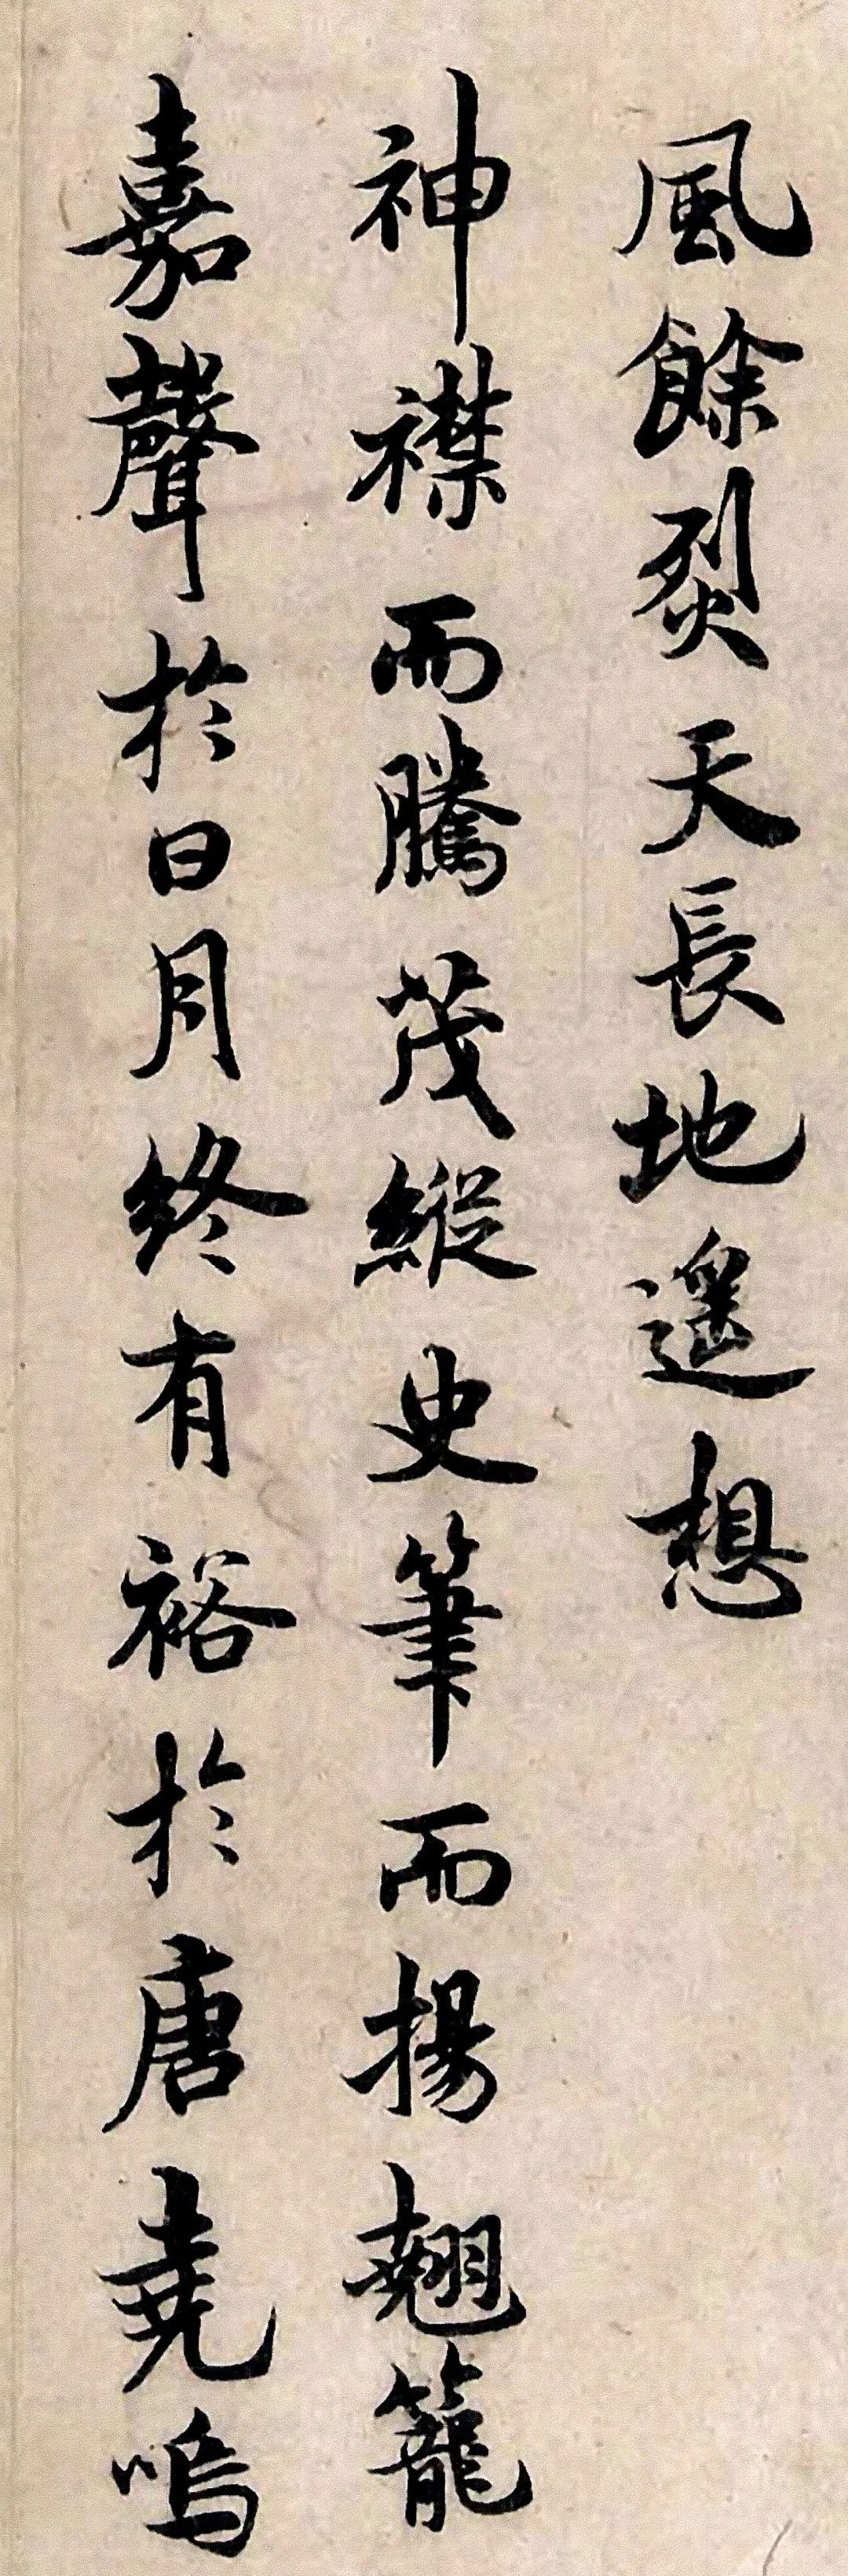 風餘烈天長地遥想
神襟而騰茂縱史筆而揚翹籠
嘉聲於日月終有裕於唐堯嗚